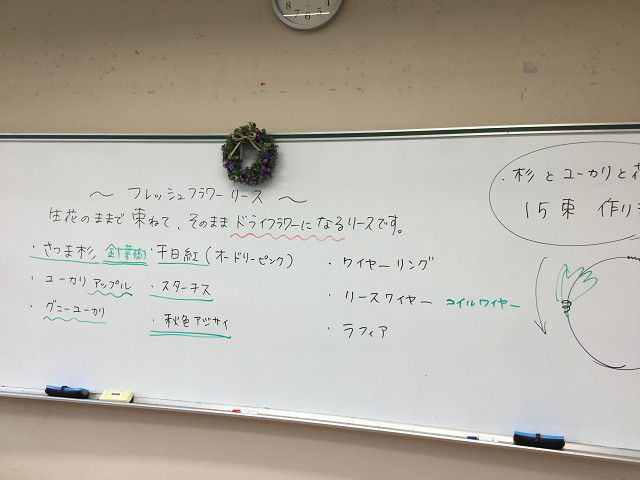 ～ フレッシュフラワーリース ～
生花のままで束ねて、そのままドライフラワーになるリースです。
・さつま杉 針葉樹
・ユーカリ アップル
・グニーユーカリ
・千日紅(オードリーピンク)
・スターチス
・秋色アジサイ
・ワイヤーリング
・リースワイヤー コイルワイヤー
・ラフィア
・杉とユーカリと花
15束 作り
8 7 6 5 4